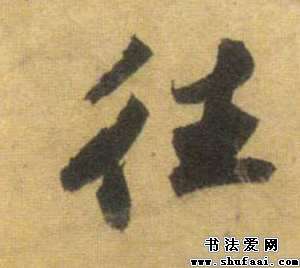 往
书法爱网
www.shufaai.com